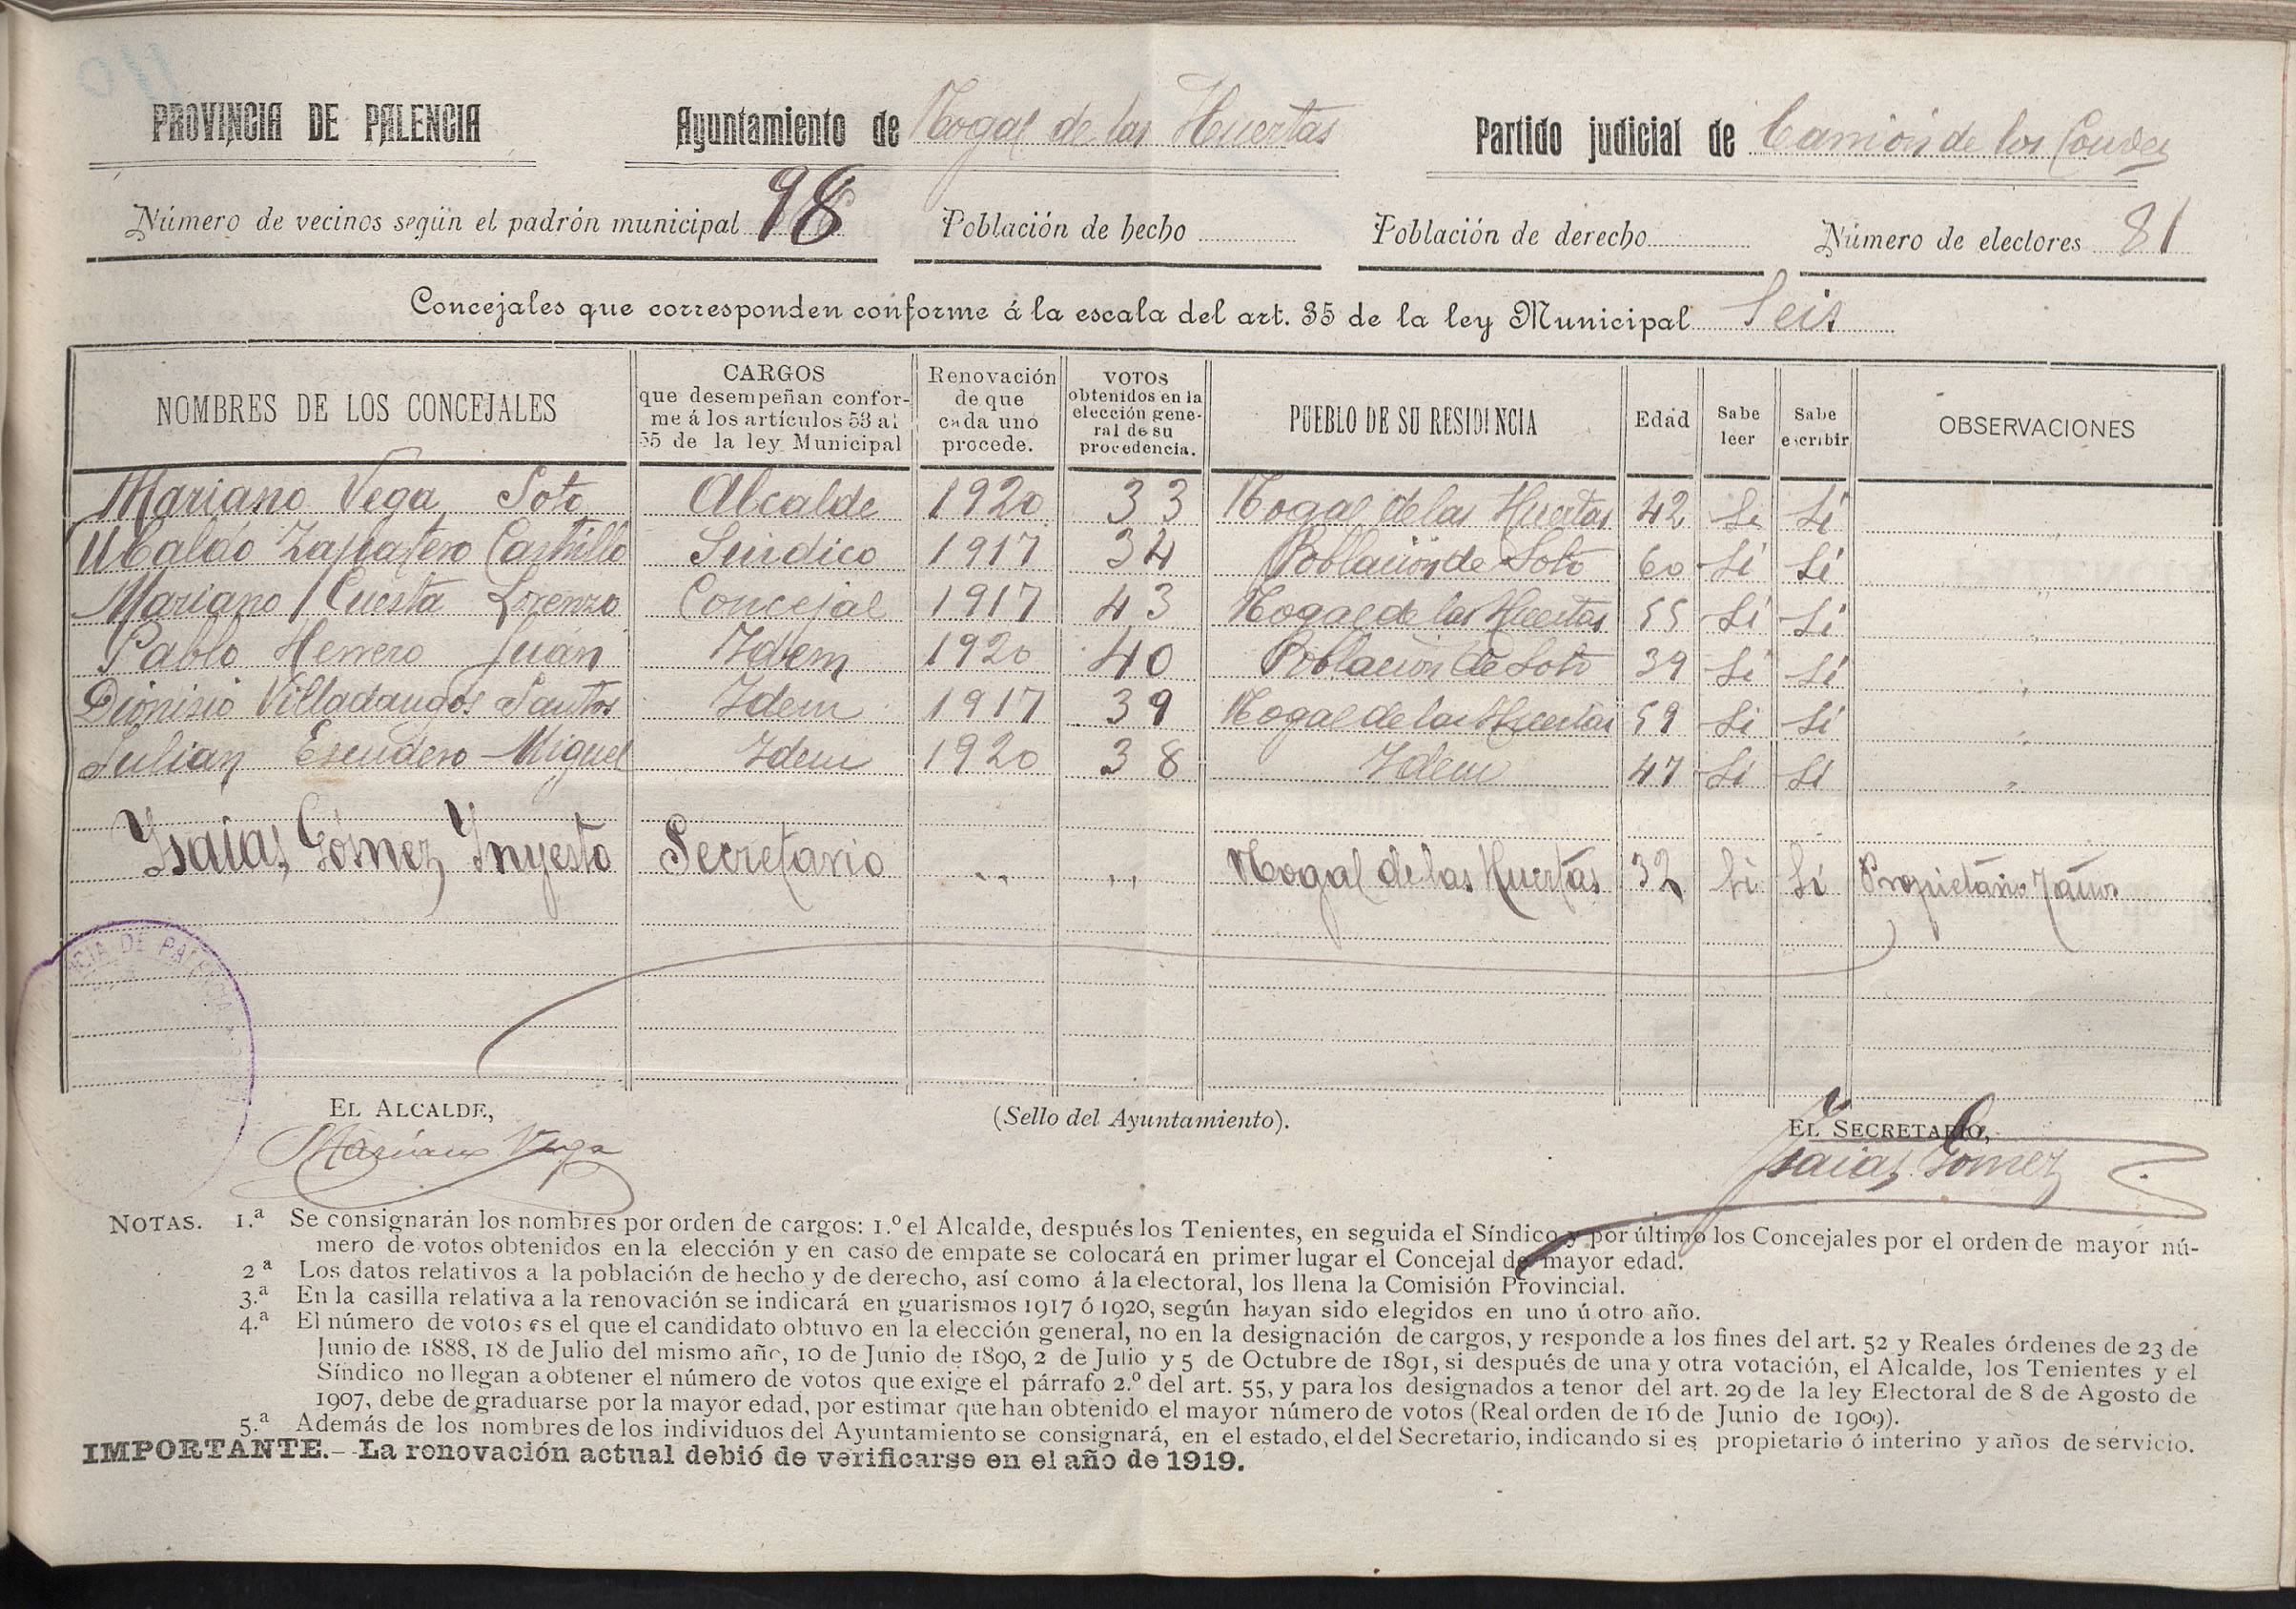 PROVINCIA DE PALENCIA Ayuntamiento de Nogal de las Huertas Partido judicial de Carrión de los Condes
Número de vecinos según el padrón municipal 98 Población de hecho Población de derecho Número de electores 81
Concejales que corresponden conforme á la escala del art. 35 de la ley Municipal Seis
NOMBRES DE LOS CONCEJALES
CARGOS
que desempeñan confor-
me á los artículos 53 al
55 de la ley Municipal
Renovación
de que
cada uno
procede.
VOTOS
obtenidos en la
elección gene-
ral de su
procedencia.
PUEBLO DE SU RESIDENCIA
Edad
Sabe
leer
Sabe
escribir
OBSERVACIONES
Mariano Vega Soto Alcalde 1920 33 Nogal de las Huertas 42 Si Sí
Ubaldo Zapatero Castrillo Sindico 1917 34 Población de Soto 60 Si Sí "
Mariano Cuesta Lorenzo Concejal 1917 43 Nogal de las Huertas 55 Si Sí "
Pablo Herrero Juán Idem 1920 40 Población de Soto 39 Si Sí "
Dionisio Villadangos Santos Idem 1917 39 Nogal de las Huertas 59 Si Sí "
Julian Escudero Miguel Idem 1920 38 Idem 47 Si Sí "
Ysaias Gómez Ynyesto Secretario " " Nogal de las Huertas 32 Si Sí Propietario 7 años
CIA DE PALENCIA
EL ALCALDE, (Sello del Ayuntamiento). EL SECRETARIO,
Mariano Vega Ysaias Gómez
NOTAS. 1.ª Se consignarán los nombres por orden de cargos: 1.º el Alcalde, después los Tenientes, en seguida el Síndico y por último los Concejales por el orden de mayor nú-
mero de votos obtenidos en la elección y en caso de empate se colocará en primer lugar el Concejal de mayor edad.
2ª Los datos relativos a la población de hecho y de derecho, así como á la electoral, los llena la Comisión Provincial.
3.ª En la casilla relativa a la renovación se indicará en guarismos 1917 ó 1920, según hayan sido elegidos en uno ú otro año.
4.ª El número de votos es el que el candidato obtuvo en la elección general, no en la designación de cargos, y responde a los fines del art. 52 y Reales órdenes de 23 de
Junio de 1888, 18 de Julio del mismo año, 10 de Junio de 1890, 2 de Julio y 5 de Octubre de 1891, si después de una y otra votación, el Alcalde, los Tenientes y el
Síndico no llegan a obtener el número de votos que exige el párrafo 2.º del art. 55, y para los designados a tenor del art. 29 de la ley Electoral de 8 de Agosto de
1907, debe de graduarse por la mayor edad, por estimar que han obtenido el mayor número de votos (Real orden de 16 de Junio de 1909).
5.ª Además de los nombres de los individuos del Ayuntamiento se consignará, en el estado, el del Secretario, indicando si es propietario ó interino y años de servicio.
IMPORTANTE.—La renovación actual debió de verificarse en el año de 1919.